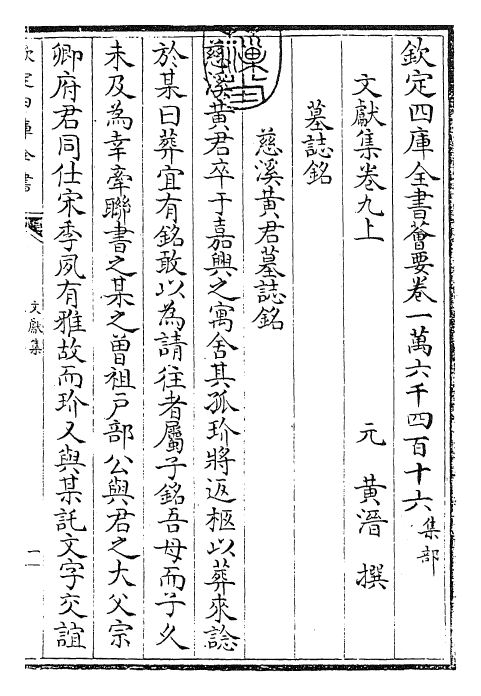 欽定四庫全書薈要卷一萬六千四百十六集部
文獻集卷九上
元 黃溍 撰
墓誌銘
慈溪黃君墓誌銘
慈溪黃君卒于嘉興之寓舍其孤玠將返柩以葬來諗
於某曰葬宜有銘敢以為請往者屬子銘吾母而子久
未及為幸牽聯書之某之曾祖戶部公與君之大父宗
卿府君同仕宋季夙有雅故而玠又與某託文字交誼
欽定四庫全書
文獻集
一